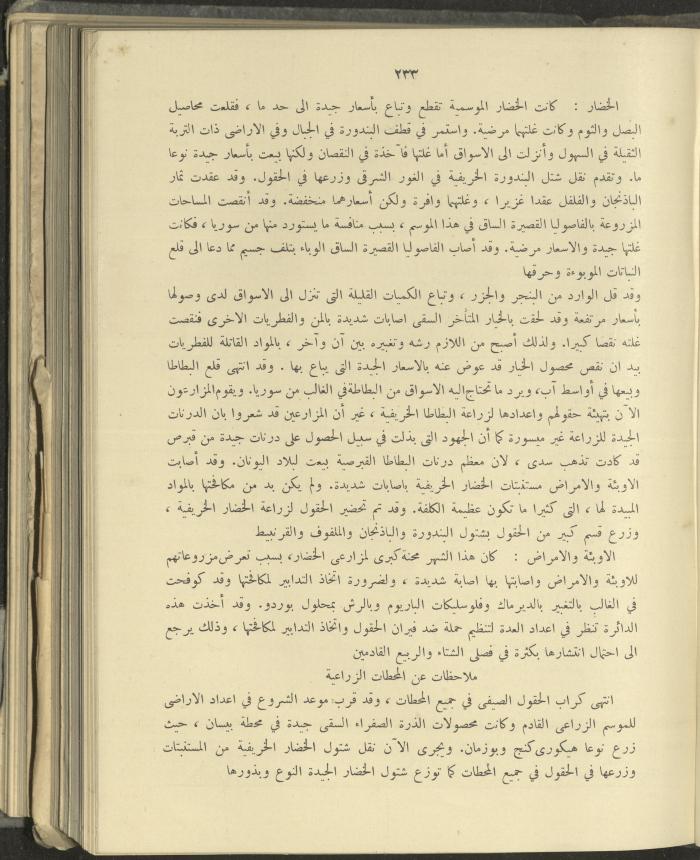 ٢٣٣
الخضار : كانت الخضار الموسمية تقطع وتباع بأسعار جيدة الى حد ما ، فقلعت محاصيل
البصل والثوم وكانت غلتهما مرضية. واستمر في قطف البندورة في الجبال وفي الاراضى ذات التربة
الثقيلة في السهول وأنزلت الى الاسواق أما غلتها فآخذة في النقصان ولكنها بيعت بأسعار جيدة نوعا
ما. وتقدم نقل شتل البندورة الخريفية في الغور الشرقى وزرعها في الحقول. وقد عقدت ثمار
الباذنجان والفلفل عقدا غزيرا ، وغلتهما وافرة ولكن أسعارهما منخفضة. وقد أنقصت المساحات
المزروعة بالفاصوليا القصيرة الساق في هذا الموسم ، بسبب منافسة ما يستورد منها من سوريا ، فكانت
غلتها جيدة والاسعار مرضية. وقد أصاب الفاصوليا القصيرة الساق الوباء بتلف جسيم مما دعا الى قلع
النباتات الموبوءة وحرقها
وقد قل الوارد من البنجر والجزر ، وتباع الكميات القليلة التى تنزل الى الاسواق لدى وصولها
بأسعار مرتفعة وقد لحقت بالخيار المتأخر السقى اصابات شديدة بالمن والفطريات الاخرى فنقصت
غلته نقصا كبيرا. ولذلك أصبح من اللازم رشه وتغبيره بين آن وآخر ، بالمواد القاتلة للفطريات
بيد ان نقص محصول الخيار قد عوض عنه بالاسعار الجيدة التى يباع بها . وقد انتهى قلع البطاطا
وبيعها في أواسط آب، ويرد ما تحتاج اليه الاسواق من البطاطة في الغالب من سوريا. ويقوم المزارعون
الآن بتهيئة حقولهم واعدادها لزراعة البطاطا الخريفية ، غير أن المزارعين قد شعروا بان الدرنات
الجيدة للزراعة غير ميسورة كما أن الجهود التى بذلت في سبيل الحصول على درنات جيدة من قبرص
قد كادت تذهب سدى ، لان معظم درنات البطاطا القبرصية بيعت لبلاد اليونان. وقد أصابت
الاوبئة والامراض مستنبتات الخضار الخريفية باصابات شديدة. ولم يكن بد من مكافحتها بالمواد
المبيدة لها ، التى كثيرا ما تكون عظيمة الكلفة. وقد تم تحضير الحقول لزراعة الخضار الخريفية ،
وزرع قسم كبير من الحقول بشتول البندورة والباذنجان والملفوف والقرنبيط
الاوبئة والامراض : كان هذا الشهر محنة كبرى لمزارعى الخضار، بسبب تعرض مزروعاتهم
للاوبئة والامراض واصابتها بها اصابة شديدة ، ولضرورة اتخاذ التدابير لمكافحتها وقد كوفحت
في الغالب بالتغبير بالديرماك وفلوسليكات الباريوم وبالرش بمحلول بوردو. وقد أخذت هذه
الدائرة تنظر في اعداد العدة لتنظيم حملة ضد فيران الحقول واتخاذ التدابير لمكافحتها ، وذلك يرجع
الى احتمال انتشارها بكثرة في فصلى الشتاء والربيع القادمين
ملاحظات عن المحطات الزراعية
انتهى كراب الحقول الصيفى في جميع المحطات ، وقد قرب موعد الشروع في اعداد الاراضى
للموسم الزراعى القادم وكانت محصولات الذرة الصفراء السقى جيدة في محطة بيسان ، حيث
زرع نوعا هيكورى كنج وبوزمان. ويجرى الآن نقل شتول الخضار الخريفية من المستنبتات
وزرعها في الحقول في جميع المحطات كما توزع شتول الخضار الجيدة النوع وبذورها